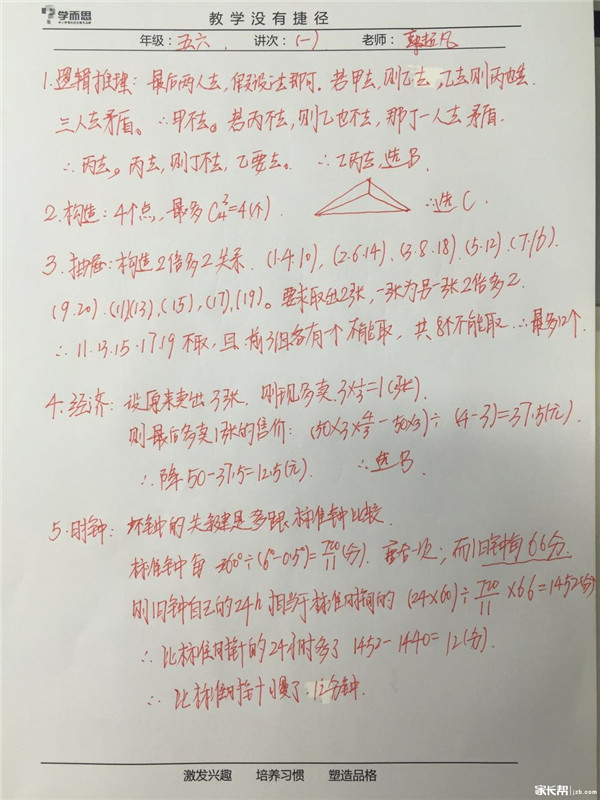 学而思
教学没有捷径
年级：五六． 讲次：(一) 老师：
1.逻辑推理：最后两人去，假设法即可。若甲去，则乙去，乙去则丙也去
三人去矛盾。∴甲不去。若丙不去，则乙也不去，那丁一人去矛盾．
∴丙去。丙去，则丁不去，乙要去。∴乙丙去，选B．
2.构造：4个点，最多C₄³=4(个)． ∴选C．
3.抽屉：构造2倍多2关系．(1.4.10)，(2.6.14)、(3.8.18)、(5.12)、(7.16)．
(9.20)．(11)(13)、(15)，(17)、(19)。要求取出2张，一张为另一张2倍多2．
∴11.13.15.17.19不取，且前3组各有一个不能取，共8个不能取∴最多12个．
4.经济：设原来卖出3张．则现多卖3×⅓=1(张)．
则最后多卖1张的售价：(50×3×4/3－50×3)÷(4－3)=37.5(元)
∴降50－37.5=12.5(元)． ∴选B．
5.时钟：坏钟的关键是多跟标准钟比较．
标准钟每360°÷(6°－0.5°)=720/11(分)．重合一次；而旧钟每66分．
则旧钟自己的24h相当于标准时间的(24×60)÷720/11×66=1452(分)
∴比标准时针的24小时多了1452－1440=12(分)．
∴比标准时指针慢了12分钟．
激发兴趣 培养习惯 塑造品格
家长帮 jzb.com